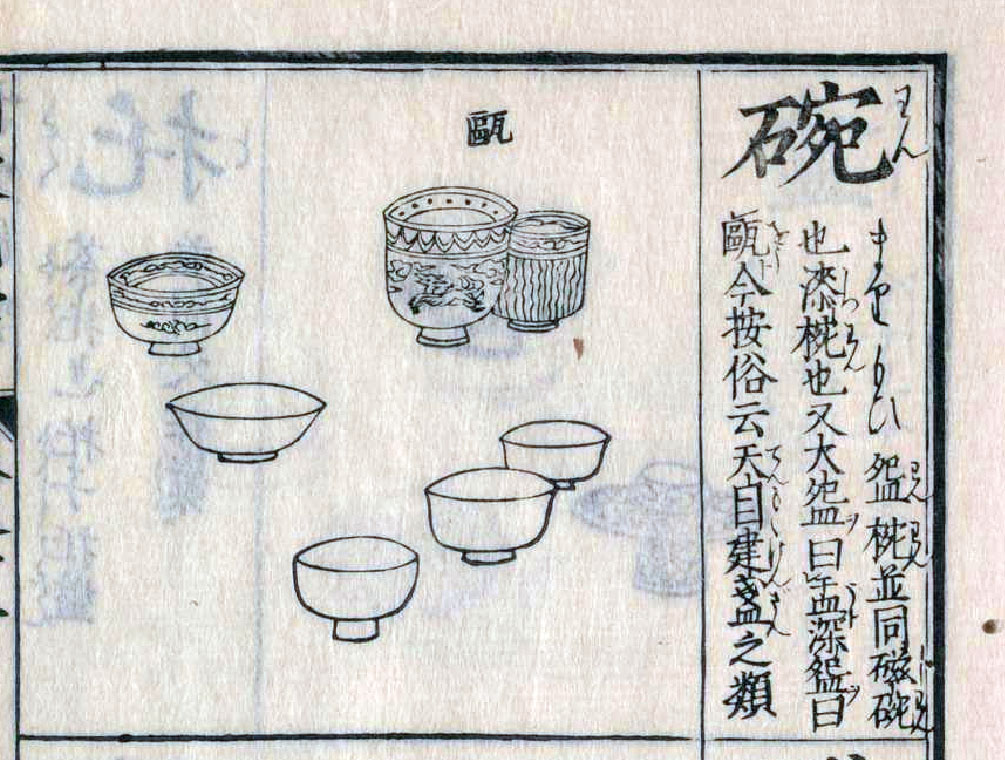 碗 わん
まり もひ 盌椀並同磁碗
也漆椀也又大盌曰盂深盌曰
甌今按俗云天目建盞之類
甌